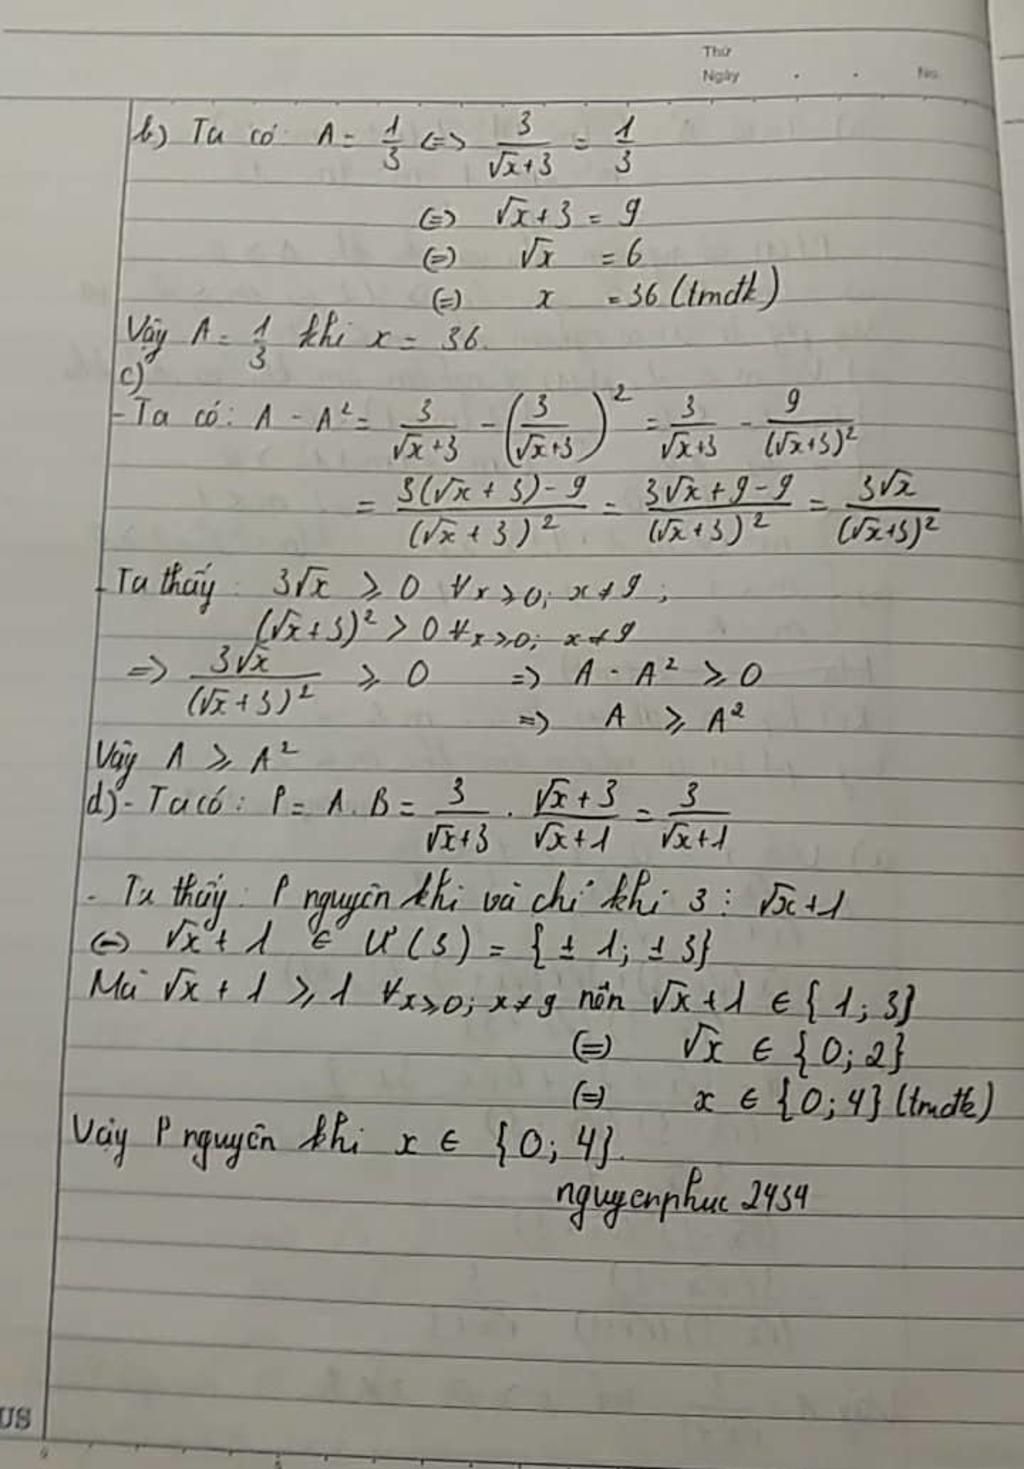 Thứ
Ngày . . No.
b) Ta có: A = 1/3 <=> 3/(√x+3) = 1/3
<=> √x+3 = 9
<=> √x = 6
<=> x = 36 (tmđk)
Vậy A = 1/3 khi x = 36.
c)
- Ta có: A - A² = 3/(√x+3) - (3/(√x+3))² = 3/(√x+3) - 9/(√x+3)²
= (3(√x+3)-9)/(√x+3)² = (3√x+9-9)/(√x+3)² = 3√x/(√x+3)²
- Ta thấy: 3√x ⩾ 0 ∀x⩾0; x≠9;
(√x+3)² > 0 ∀x⩾0; x≠9
=> 3√x/(√x+3)² ⩾ 0 => A - A² ⩾ 0
=> A ⩾ A²
Vậy A ⩾ A²
d) - Ta có: P = A.B = 3/(√x+3) . (√x+3)/(√x+1) = 3/(√x+1)
- Ta thấy: P nguyên khi và chỉ khi 3 ⋮ √x+1
<=> √x+1 ∈ Ư(3) = {±1; ±3}
Mà √x+1 ⩾ 1 ∀x⩾0; x≠9 nên √x+1 ∈ {1; 3}
<=> √x ∈ {0; 2}
<=> x ∈ {0; 4} (tmđk)
Vậy P nguyên khi x ∈ {0; 4}.
nguyenphuc 2454
US